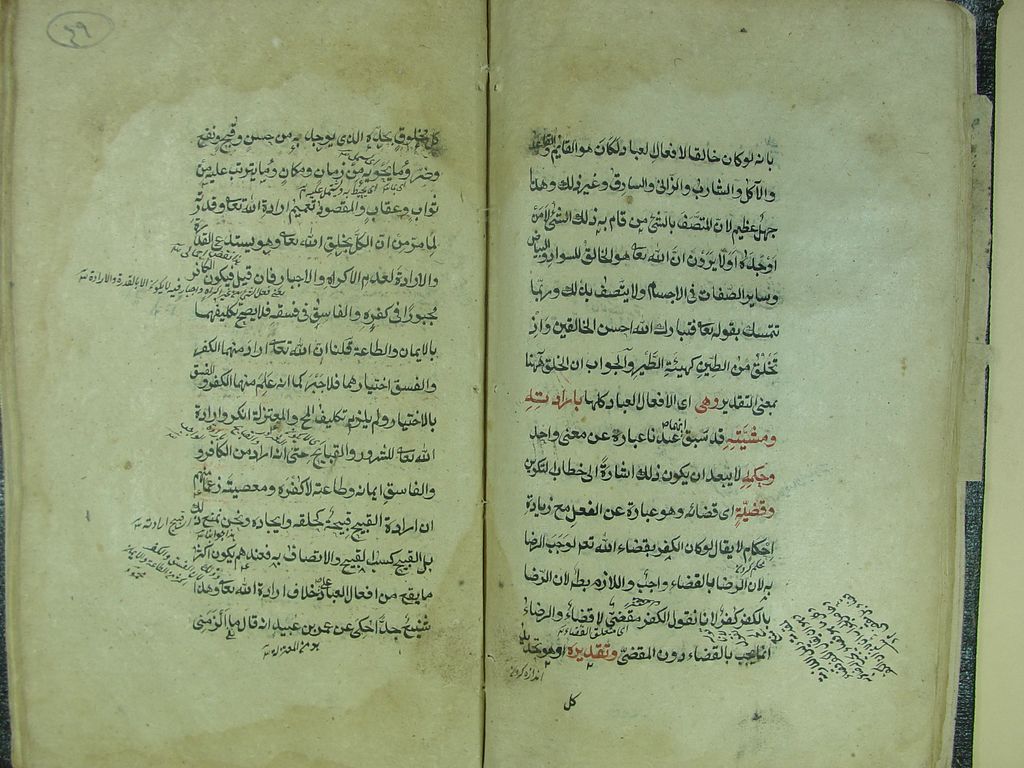 بانه لوكان خالقا لافعال العباد لكان هو القائم والقاعد
والآكل والشارب والزاني والسارق وغير ذلك وهذا
جهل عظيم لان المتصف بالشئ من قام به ذلك الشئ لا من
اوجده اولا يرون ان الله تعا هو الخالق للسواد والبياض
وساير الصفات فى الاجسام ولا يتصف بذلك وربما
تتمسك بقوله تعا فتبارك الله احسن الخالقين واذ
تخلق من الطين كهيئة الطير والجواب ان الخلق ههنا
بمعنى التقدير وهى اى الافعال العباد كلها بارادته
ومشيته قد سبق انهما عندنا عبارة عن معنى واحد
وحكمه لا يبعد ان يكون ذلك اشارة الى خطاب التكوين
وقضيته اى قضائه وهو عبارة عن الفعل مع زيادة
احكام لا يقال لو كان الكفر بقضاء الله تعم لوجب الرضا
به لان الرضا بالقضاء واجب واللازم بط لان الرضا
بالكفر كفر لانا نقول الكفر مقضى لا قضاء والرضاء
انما يجب بالقضاء دون المقضى وتقديره وهو تحديد
اى متعلق القضاء
اندازه كردن
كل
٤٩
كل مخلوق بحده الذى يوجد به من حسن وقبح ونفع
وضر وما يحويه من زمان ومكان وما يترتب عليه من
ثواب وعقاب والمقصود تعميم ارادة الله تعا وقدرته
لما مر من ان الكل بخلق الله تعا وهو يستدعى القدرة
والارادة لعدم الاكراه والاجبار فان قيل فيكون الكافر
مجبورا فى كفره والفاسق فى فسقه فلا يصح تكليفهما
بالايمان والطاعة قلنا ان الله تعا اراد منهما الكفر
والفسق اختيارهما فلا جبر كما انه علم منهما الكفر والفسق
بالاختيار ولم يلزم تكليف المح والمعتزلة انكروا ارادة
الله تعا للشرور والقبايح حتى انه اراد من الكافر و
والفاسق ايمانه وطاعته لا كفره ومعصيته زعما منهم
ان ارادة القبيح قبيحة كخلقه وايجاده ونحن نمنع ذلك
بل القبيح كسب القبيح والاتصاف به فعندهم يكون اكثر
ما يقع من افعال العباد على خلاف ارادة الله تعا وهذا
شنيع جدا حكى عن عمرو بن عبيد انه قال ما الزمنى
هو من المعتزلة